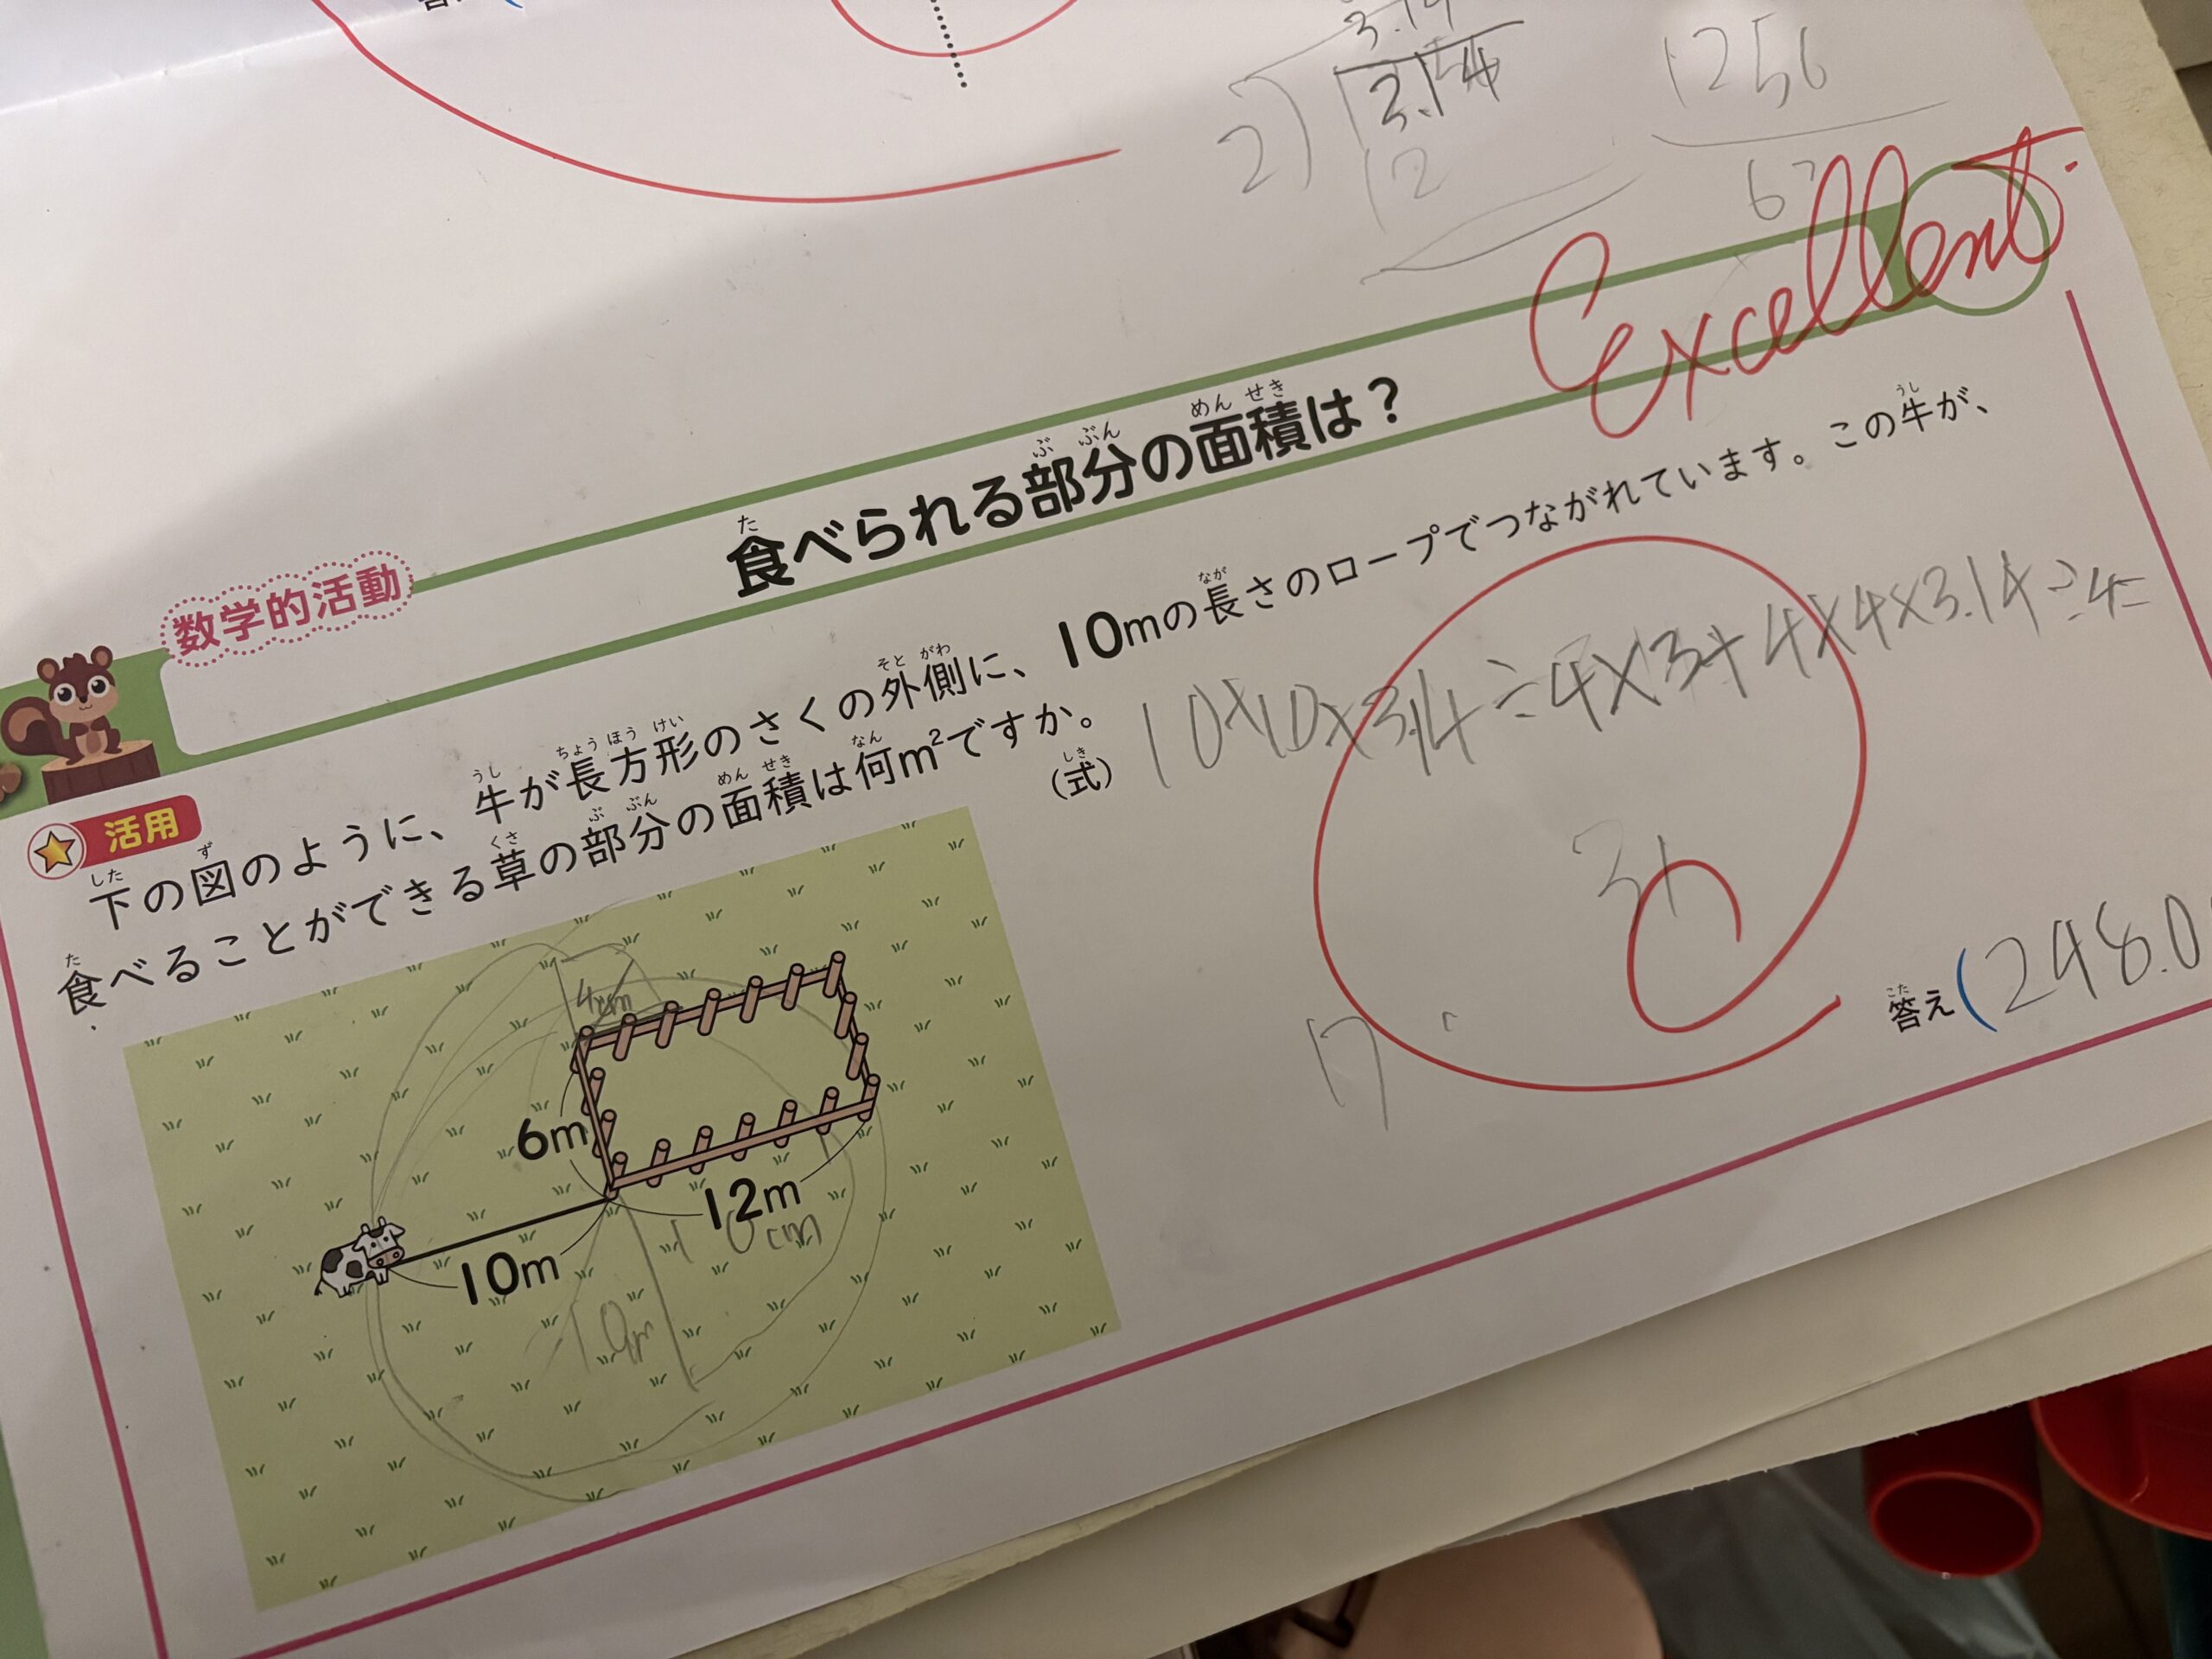 3.14
2)3.14
12
1256
Excellent.
数学的活動
食べられる部分の面積は?
活用
下の図のように、牛が長方形のさくの外側に、10mの長さのロープでつながれています。この牛が、
食べることができる草の部分の面積は何m²ですか。
(式) 10×10×3.14÷4×3+4×4×3.14÷4=
4m
6m
12m
10cm
10m
10m
答え(248.0